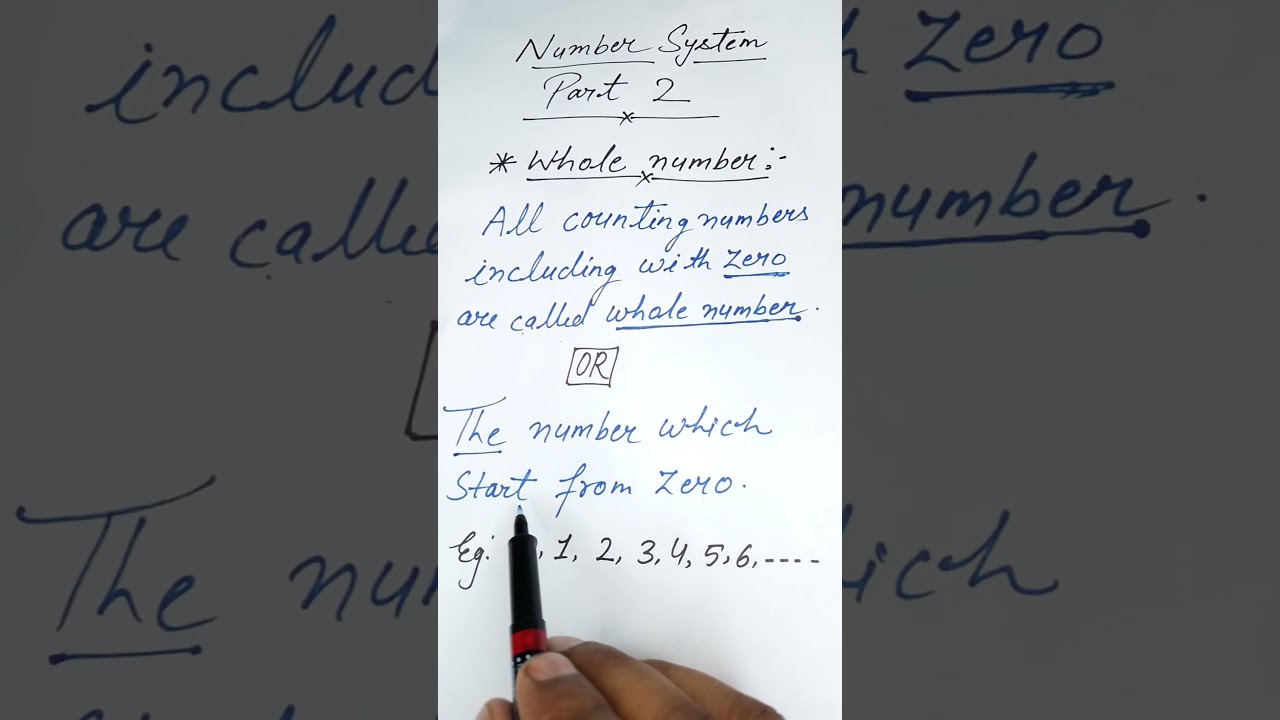 Number System
Part 2
* Whole number:-
All counting numbers
including with zero
are called whole number.
OR
The number which
Start from zero.
Eg: , 1, 2, 3, 4, 5, 6, ----